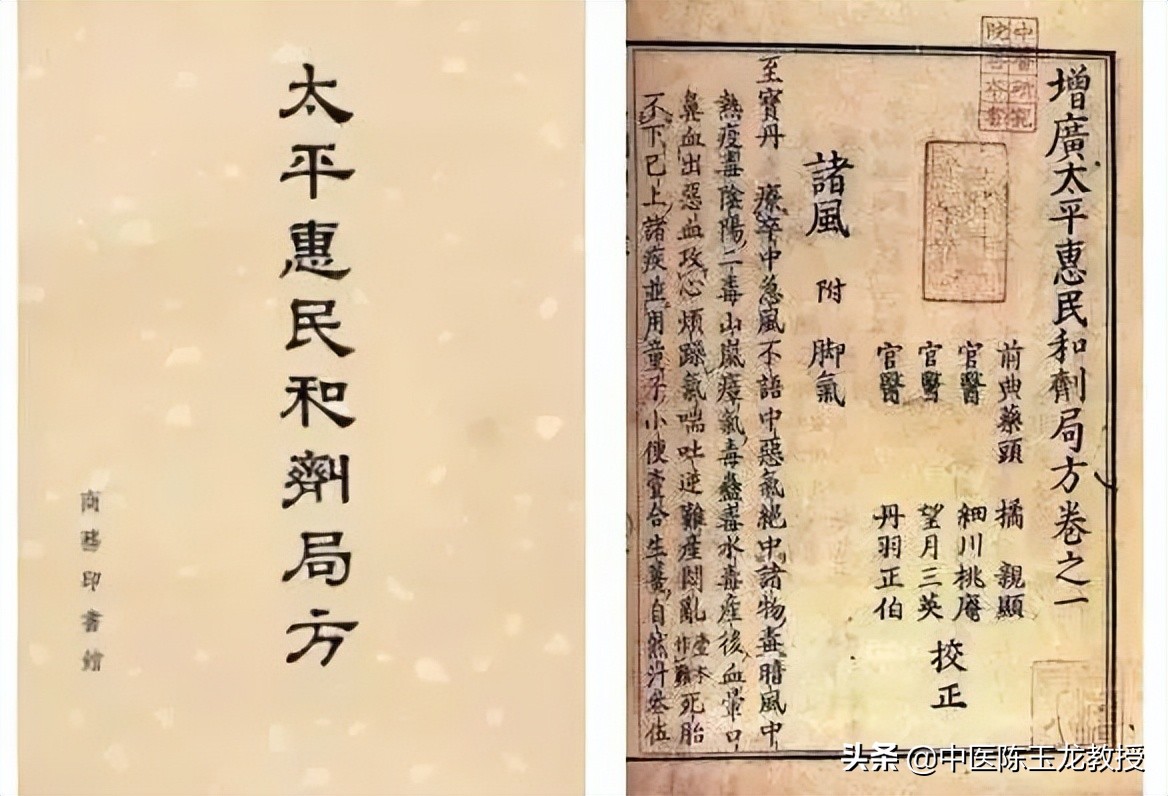 太平惠民和劑局方
商務印書館
增廣太平惠民和劑局方卷之一
前典藥頭 橘 親顯
官醫 細川桃庵
官醫 望月三英
官醫 丹羽正伯
校正
諸風 附 脚氣
至寶丹 療卒中急風不語中惡氣絶中諸物毒暗風中
熱疫毒陰陽二毒山嵐瘴氣毒蠱毒水毒産後血暈口
鼻血出惡血攻心煩躁氣喘吐逆難産悶亂死胎
不下已上諸疾並用童子小便壹合生薑自然汁叁伍
头条 @中医陈玉龙教授